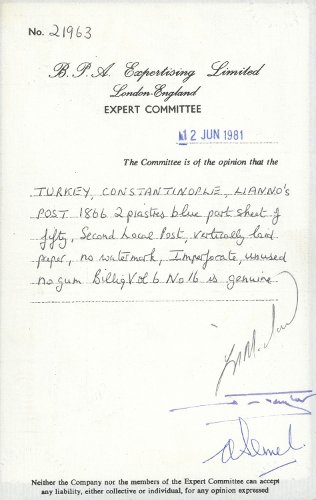 No. 21963
B. P. A. Expertising Limited
London-England
EXPERT COMMITTEE
12 JUN 1981
The Committee is of the opinion that the
TURKEY, CONSTANTINOPLE, LIANNO's
POST 1866 2 piastres blue part sheet of
fifty, Second Local Post, vertically laid
paper, no watermark, Imperforate, unused
no gum Billig Vol 6 No 16 is genuine
Neither the Company nor the members of the Expert Committee can accept
any liability, either collective or individual, for any opinion expressed